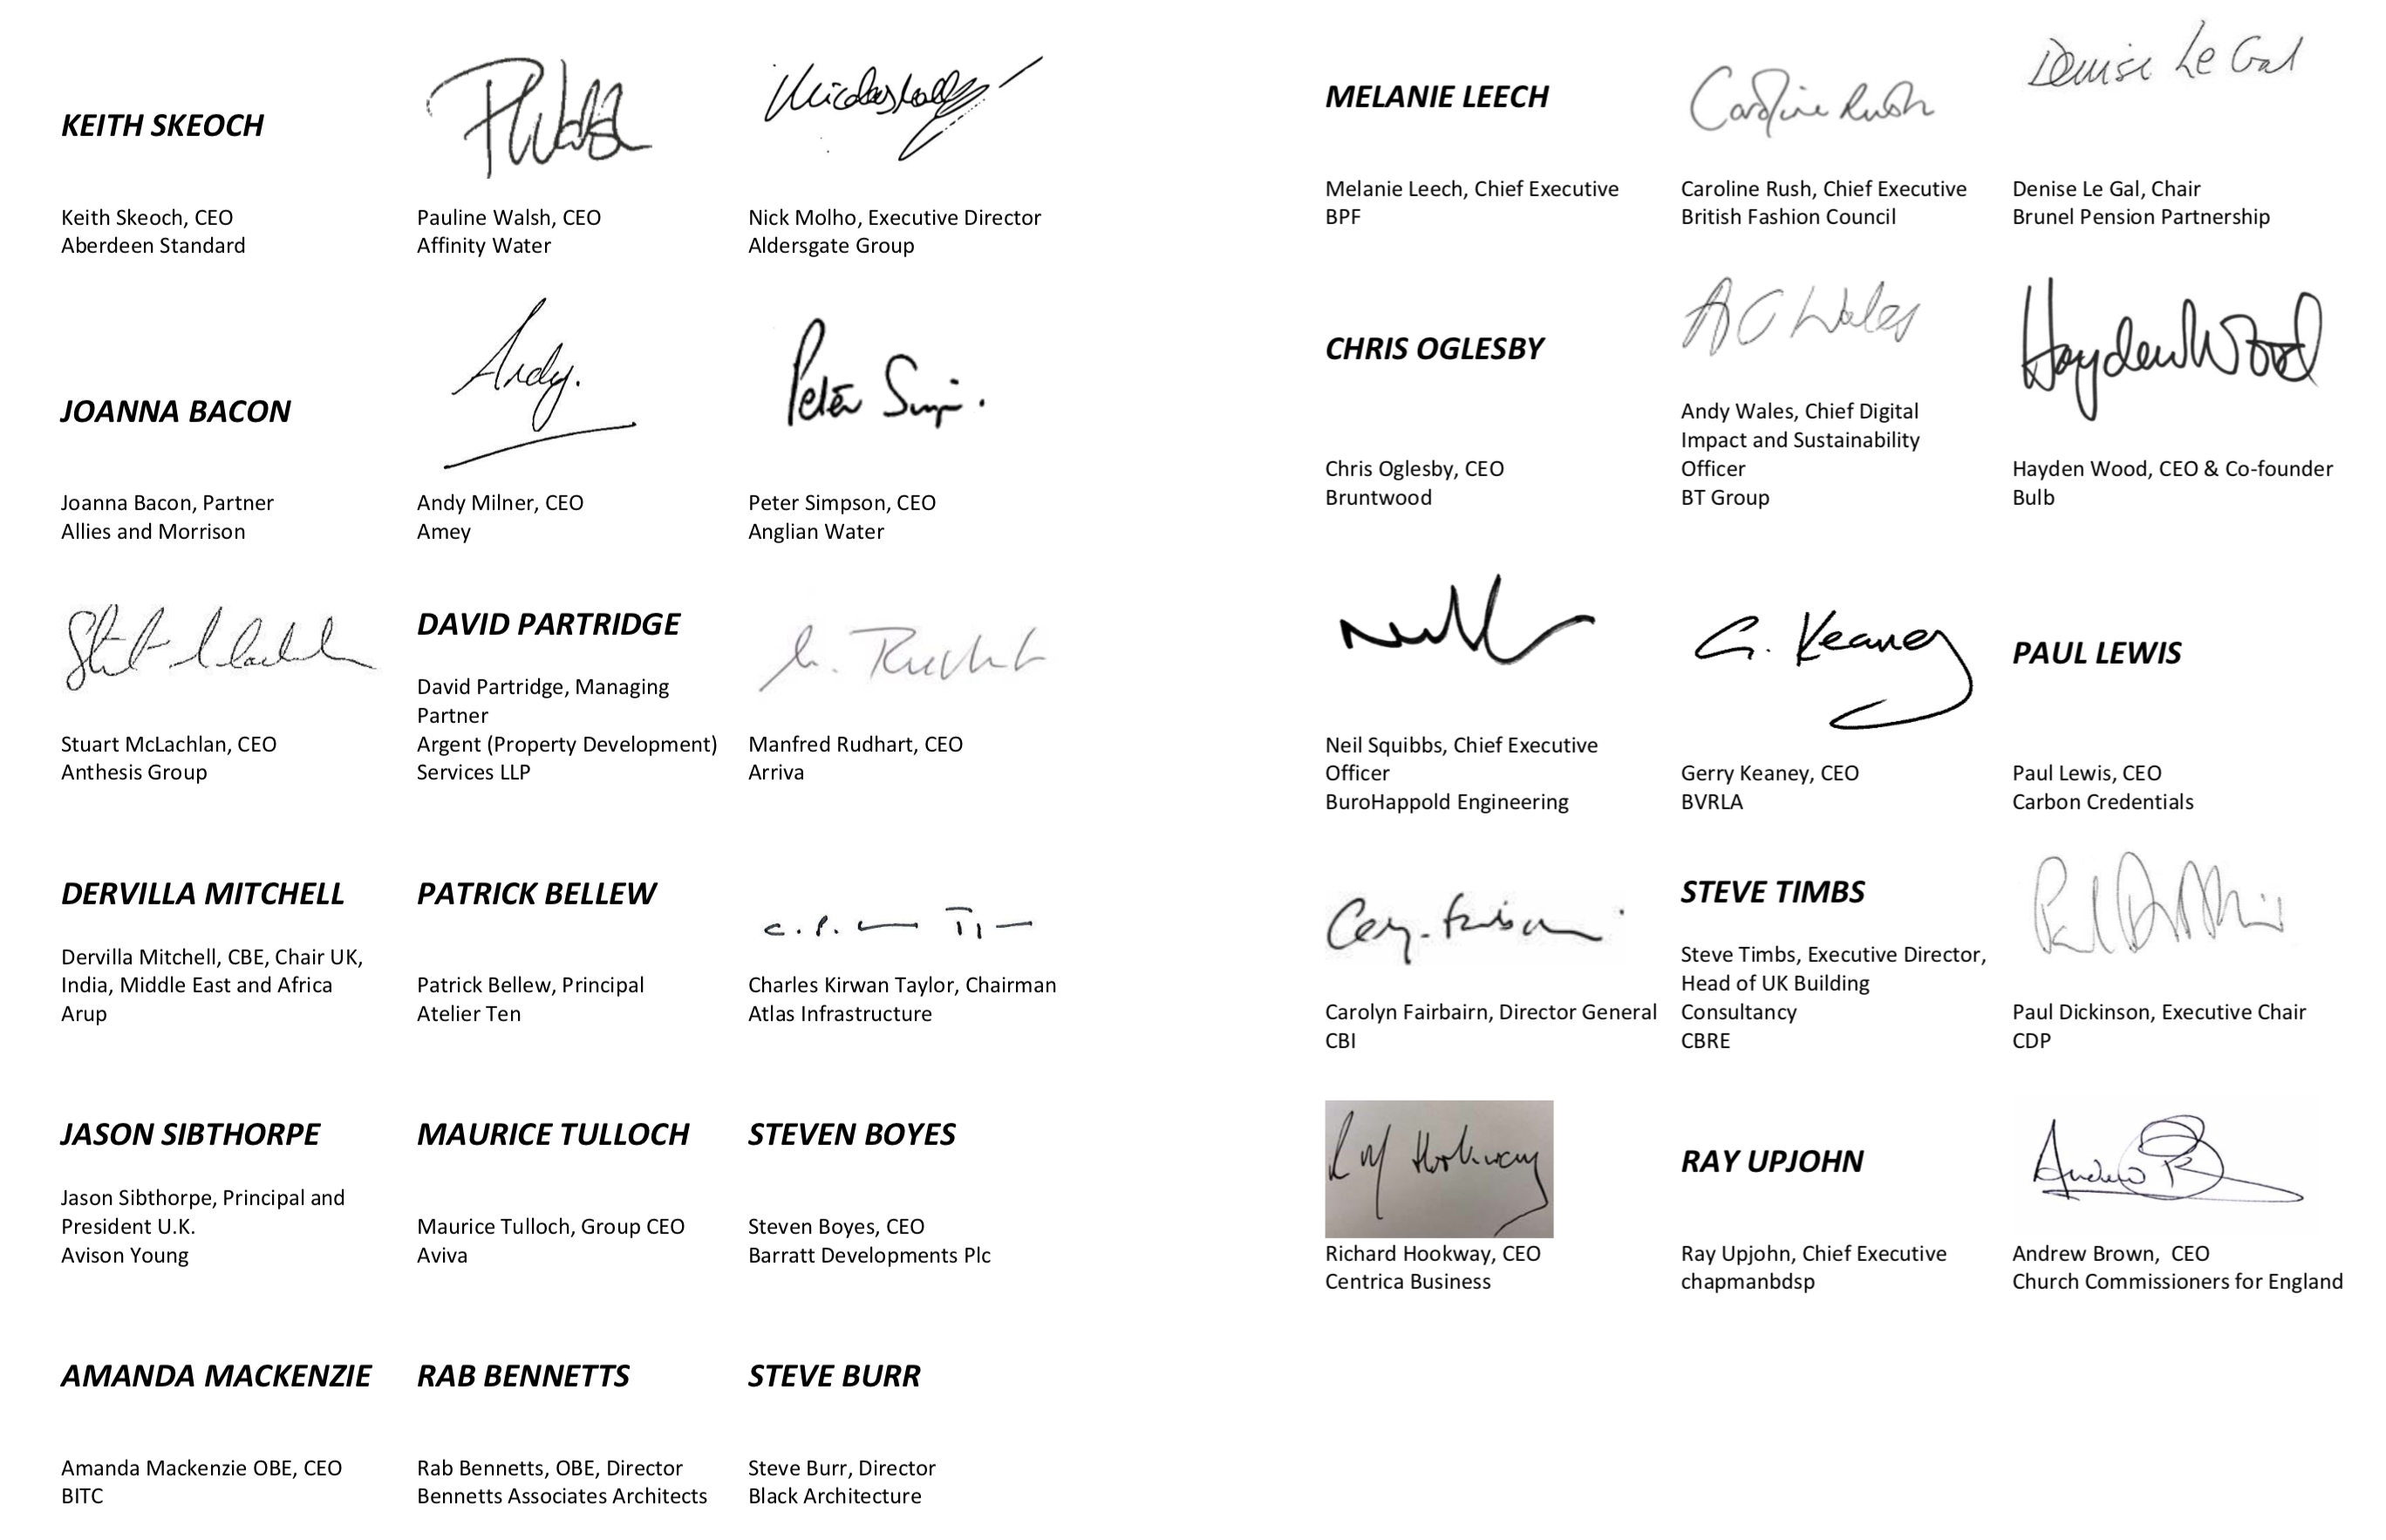 KEITH SKEOCH
Keith Skeoch, CEO
Aberdeen Standard
PWalsh
Pauline Walsh, CEO
Affinity Water
Nick Molho, Executive Director
Aldersgate Group
JOANNA BACON
Joanna Bacon, Partner
Allies and Morrison
Andy.
Andy Milner, CEO
Amey
Peter Simp.
Peter Simpson, CEO
Anglian Water
Stuart McLachlan, CEO
Anthesis Group
DAVID PARTRIDGE
David Partridge, Managing
Partner
Argent (Property Development)
Services LLP
Manfred Rudhart, CEO
Arriva
DERVILLA MITCHELL
Dervilla Mitchell, CBE, Chair UK,
India, Middle East and Africa
Arup
PATRICK BELLEW
Patrick Bellew, Principal
Atelier Ten
Charles Kirwan Taylor, Chairman
Atlas Infrastructure
JASON SIBTHORPE
Jason Sibthorpe, Principal and
President U.K.
Avison Young
MAURICE TULLOCH
Maurice Tulloch, Group CEO
Aviva
STEVEN BOYES
Steven Boyes, CEO
Barratt Developments Plc
AMANDA MACKENZIE
Amanda Mackenzie OBE, CEO
BITC
RAB BENNETTS
Rab Bennetts, OBE, Director
Bennetts Associates Architects
STEVE BURR
Steve Burr, Director
Black Architecture
MELANIE LEECH
Melanie Leech, Chief Executive
BPF
Caroline Rush
Caroline Rush, Chief Executive
British Fashion Council
Denise Le Gal
Denise Le Gal, Chair
Brunel Pension Partnership
CHRIS OGLESBY
Chris Oglesby, CEO
Bruntwood
A C Wales
Andy Wales, Chief Digital
Impact and Sustainability
Officer
BT Group
Hayden Wood
Hayden Wood, CEO & Co-founder
Bulb
Neil Squibbs, Chief Executive
Officer
BuroHappold Engineering
G. Keaney
Gerry Keaney, CEO
BVRLA
PAUL LEWIS
Paul Lewis, CEO
Carbon Credentials
Carolyn Fairbairn, Director General
CBI
STEVE TIMBS
Steve Timbs, Executive Director,
Head of UK Building
Consultancy
CBRE
Paul Dickinson, Executive Chair
CDP
Hookway
Richard Hookway, CEO
Centrica Business
RAY UPJOHN
Ray Upjohn, Chief Executive
chapmanbdsp
Andrew
Andrew Brown,  CEO
Church Commissioners for England